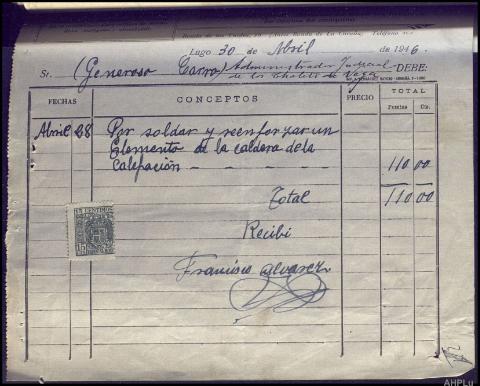 Lugo 30 de Abril de 1946.
Sr. (Generoso Carro) Administrador Judicial DEBE:
de los chalets de Vega
FECHAS CONCEPTOS PRECIO TOTAL
Pesetas Cts.
Abril 28 Por soldar y reenforzar un
Elemento de la caldera dela
Calefación - - - 110 00
Total 110 00
Recibi
Francisco Alvarez
15 CENTIMOS
15
AHPLu